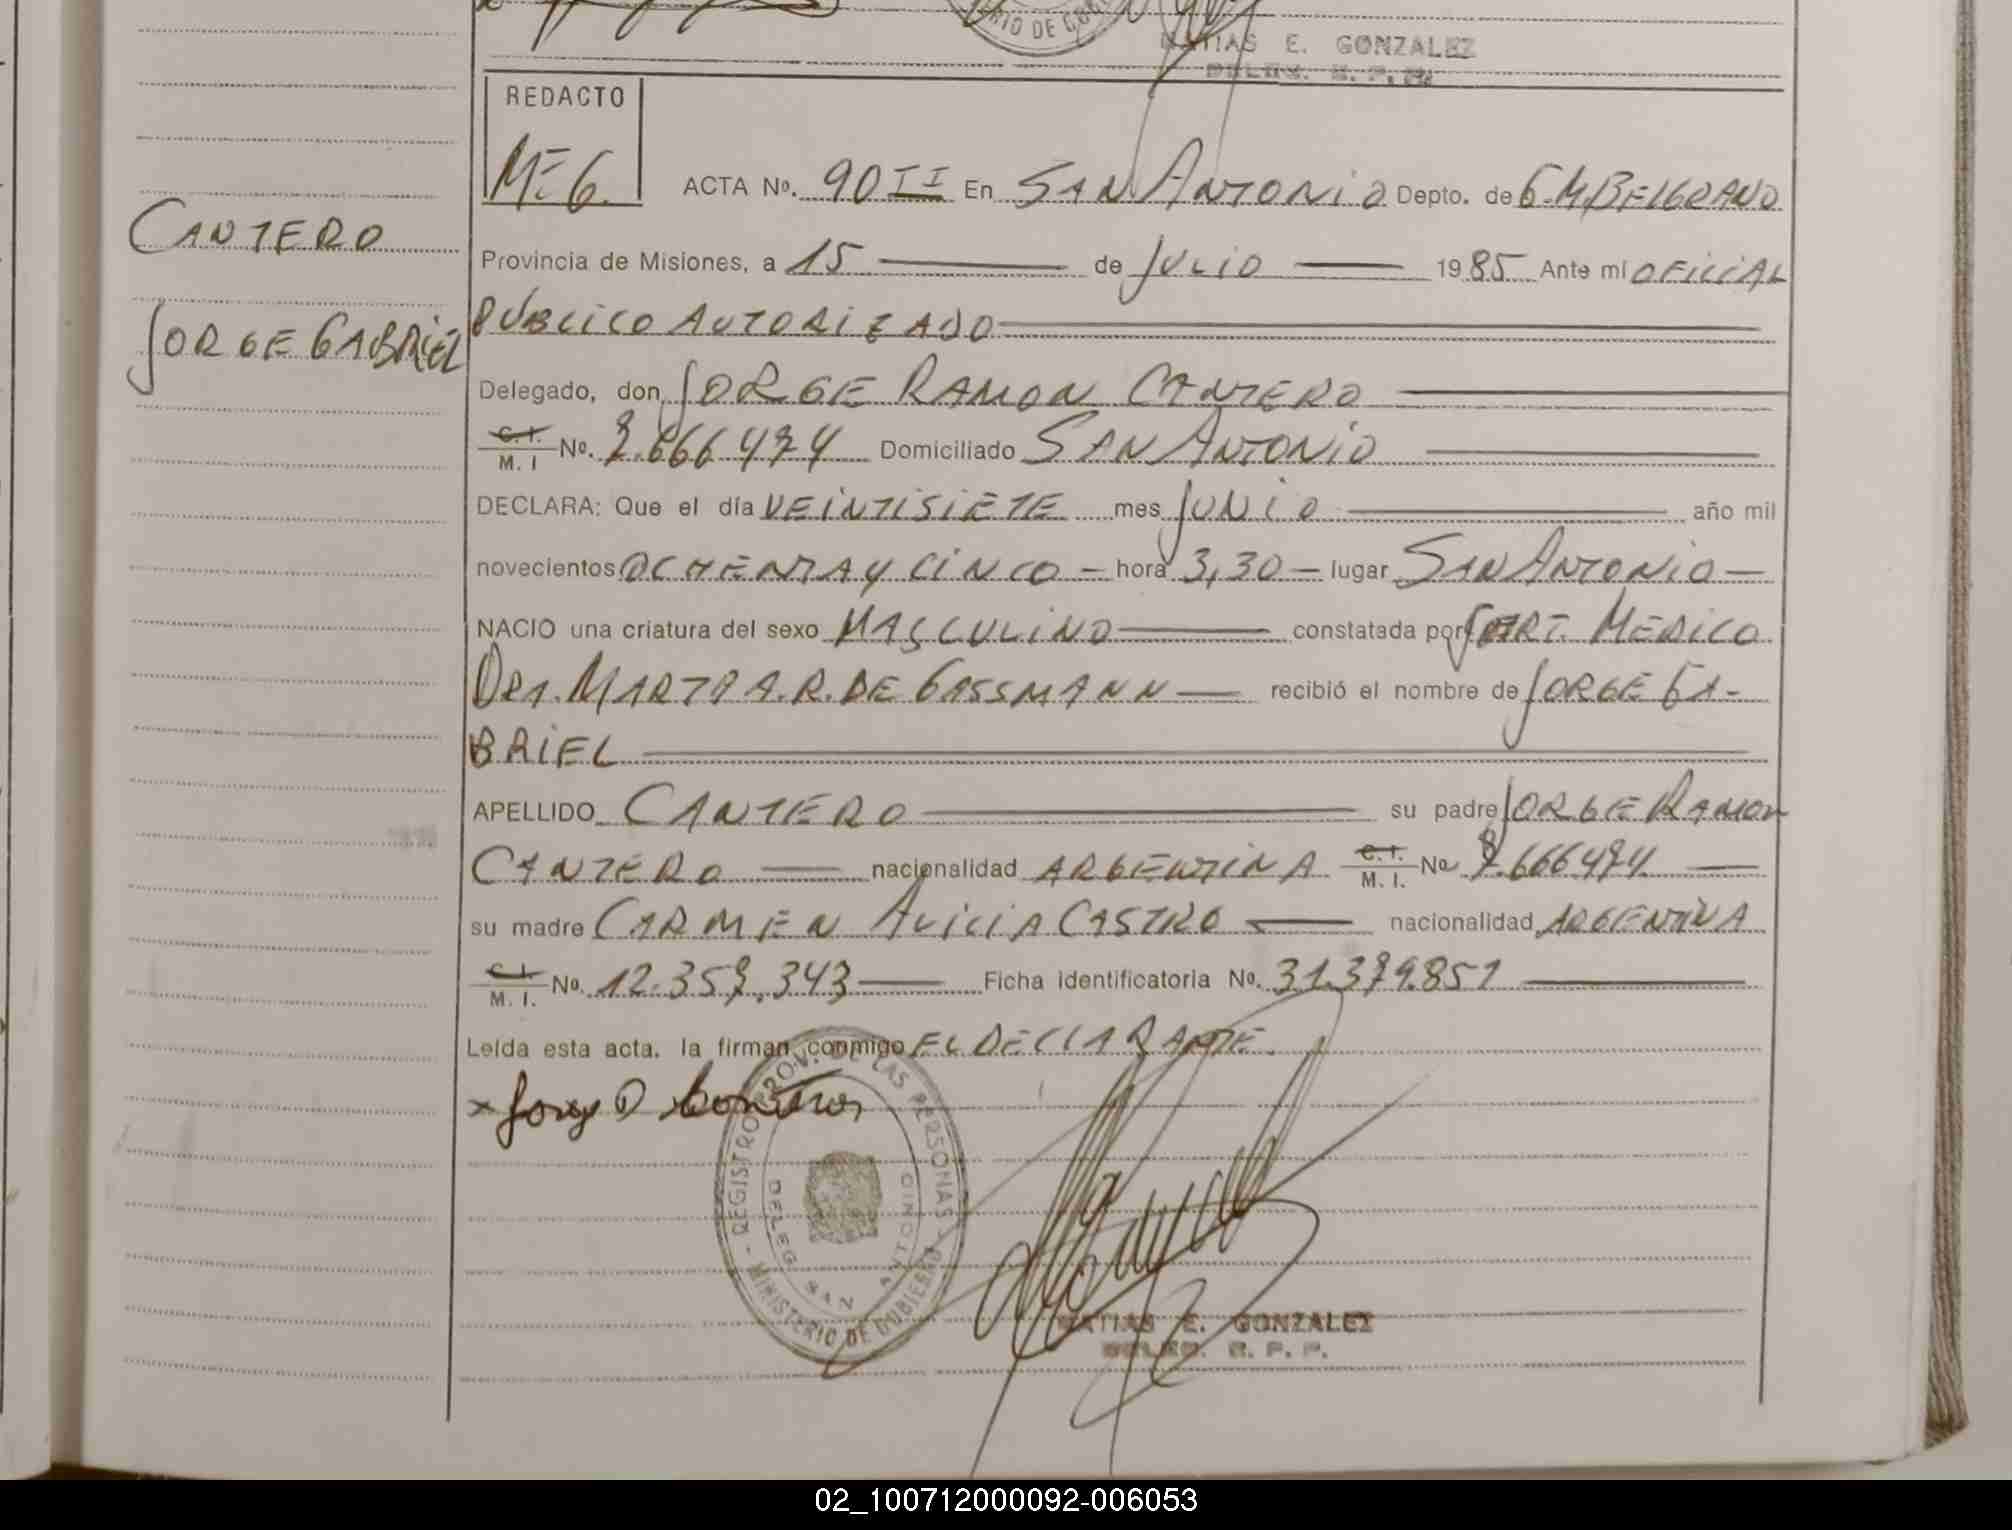 MATIAS E. GONZALEZ
DELEG. R. P. P.
REDACTO
M.E.G.
ACTA Nº. 90 II En SAN ANTONIO Depto. de G.M.BELGRANO
CANTERO
Provincia de Misiones, a 15 de JULIO 1985 Ante mí OFICIAL
PÚBLICO AUTORIZADO
JORGE GABRIEL
Delegado, don JORGE RAMON CANTERO
C.I. / M. I Nº. 8.666474 Domiciliado SAN ANTONIO
DECLARA: Que el día VEINTISIETE mes JUNIO año mil
novecientos OCHENTA Y CINCO - hora 3,30 - lugar SAN ANTONIO -
NACIO una criatura del sexo MASCULINO constatada por CERT. MEDICO
DRA. MARTA A.R. DE GASSMANN recibió el nombre de JORGE GA-
BRIEL
APELLIDO CANTERO su padre JORGE RAMON
CANTERO nacionalidad ARGENTINA C.I. / M. I. Nº 8.666474
su madre CARMEN ALICIA CASTRO nacionalidad ARGENTINA
C.I. / M. I. Nº. 12.357.343 Ficha identificatoria No. 31.379.851
Leída esta acta, la firman conmigo EL DECLARANTE.
REGISTRO PROV. DE LAS PERSONAS - MINISTERIO DE GOBIERNO -
DELEG. SAN ANTONIO
MATIAS E. GONZALEZ
DELEG. R. P. P.
02_100712000092-006053